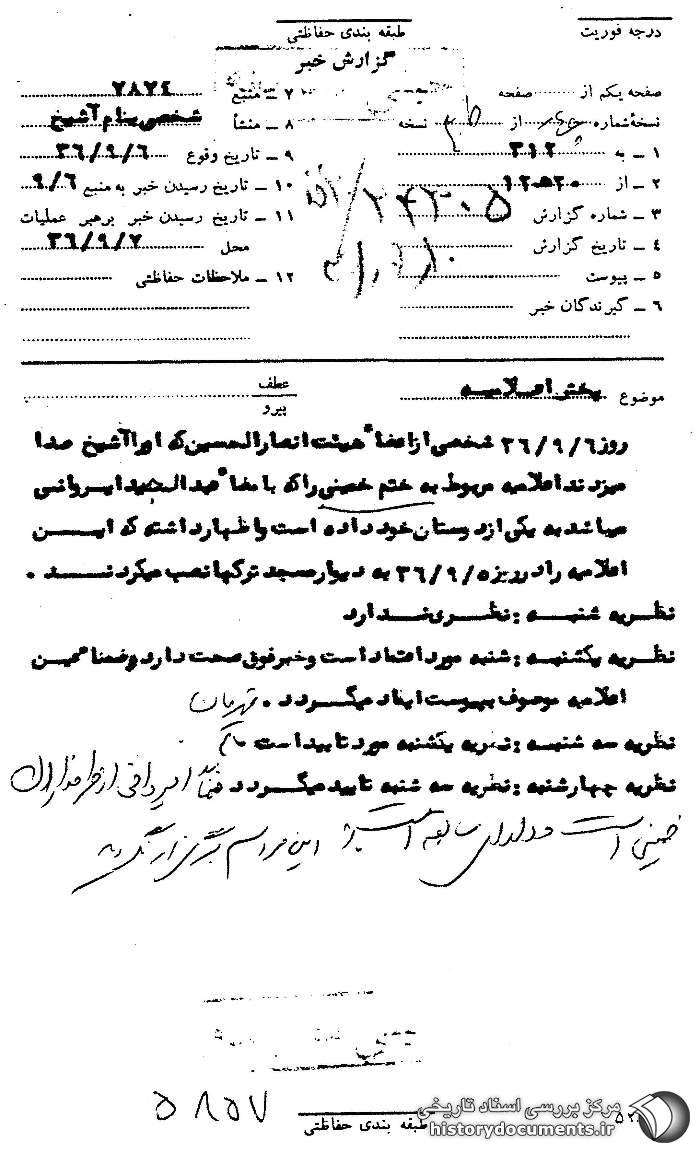 درجه فوریت
طبقه بندی حفاظتی
گزارش خبر
صفحه یکم از صفحه
نسخهٔ شماره از نسخه
۱ ــ به ۳۱۲
۲ ــ از ۱۲ه۲۰
۳ ــ شماره گزارش
۴ ــ تاریخ گزارش
۵ ــ پیوست
۶ ــ گیرندگان خبر
۷ ــ منبع ۷۸۷٤
۸ ــ منشأ شخصی بنام آشیخ
۹ ــ تاریخ وقوع ۳۶/۹/۶
۱۰ ــ تاریخ رسیدن خبر به منبع ۹/۶
۱۱ ــ تاریخ رسیدن خبر برهبر عملیات
محل ۳۶/۹/۷
۱۲ ــ ملاحظات حفاظتی
موضوع پخش اعلامیه
عطف
پیرو
روز ۳۶/۹/۶ شخصی از اعضاء هیئت انصار الحسین که او را آشیخ صدا
میزدند اعلامیه مربوط به ختم خمینی را که با مضاء عبدالمجید ایروانی
میباشد به یکی از دوستان خود داده است و اظهار داشته که ایـــن
اعلامیه را در روز ۳۶/۹/۵ به دیوار مسجد ترکها نصب میکردنــد .
نظریه شنبه : نظری ندارد
نظریه یکشنبه : شنبه مورد اعتماد است و خبر فوق صحت دارد و ضمنا عین
اعلامیه موصوف بپیوست ایفاد میگــردد . قهرمان
نظریه سه شنبه : نظریه یکشنبه مورد تایید است
نظریه چهارشنبه : نظریه سه شنبه تایید میگــردد از طرفداران
خمینی است و دارای سابقه است این مراسم
۵۸۵۷
طبقه بندی حفاظتی
مرکز بررسی اسناد تاریخی
historydocuments.ir